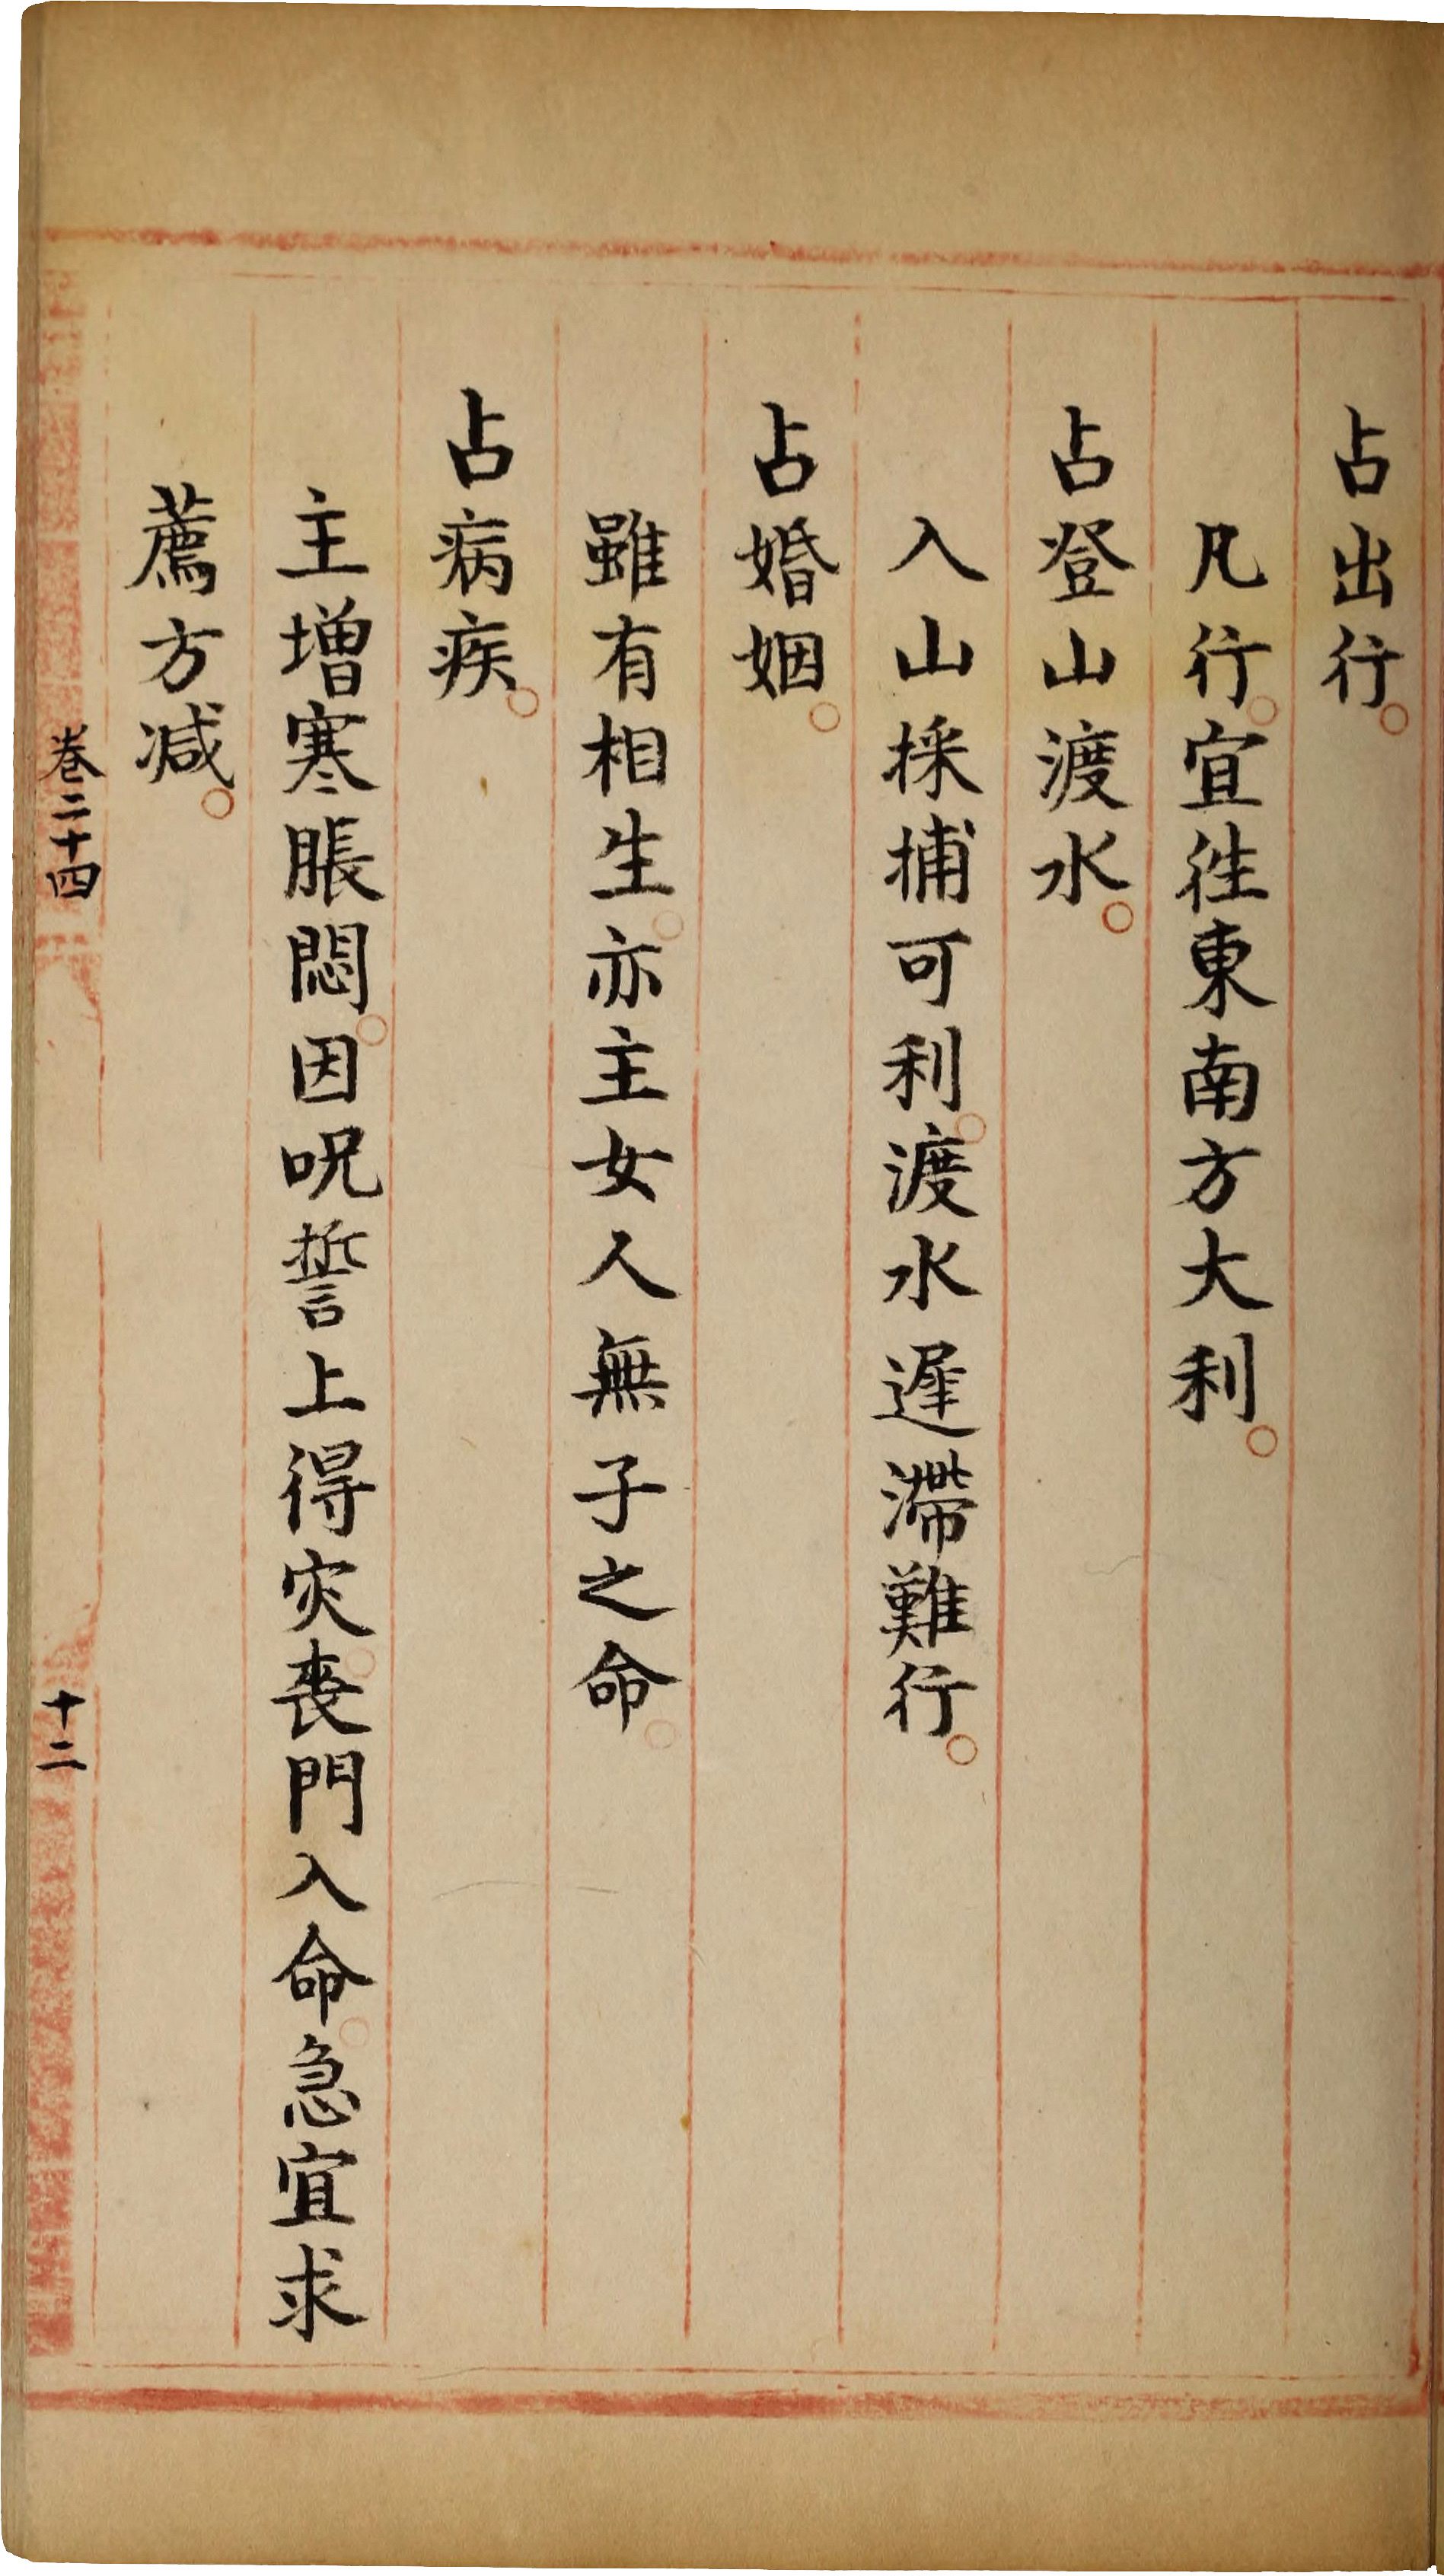 占出行。
凡行。宜徃東南方大利。
占登山渡水。
入山採捕可利。渡水遲滯難行。
占婚姻。
雖有相生。亦主女人無子之命。
占病疾。
主增寒脹悶。因呪誓上得灾。喪門入命。急宜求
薦方减。
卷二十四
十二